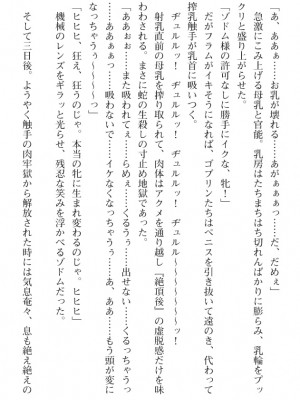 「あ、あああ……お乳が壊れる……あがぁぁっ……だ、だめぇ」
急激にこみ上げる母乳と官能、乳房はたちまちはち切れんばかりに膨らみ、乳輪をプッ
クリと盛り上がらせた。
「ゾドム様の許可なしに勝手にイクな、牝！」
だがフラムがイキそうになれば、ゴブリンたちはペニスを引き抜いて遠のき、代わって
搾乳触手が乳首に吸いつく。
ヂュルルッ！　ヂュルルッ！　ヂュルル～～～～～～ッ！
射乳直前の母乳を搾り取られて、肉体はアクメを通り越し『絶頂後』の虚脱感だけを味
わわされる。まさに蛇の生殺しの寸止め地獄であった。
「あああぁ……また吸われてぇ……らめぇ……くるぅぅ……出せない……くるっちゃうっ
ううぅ～～～っっ……吸わないで……イケなくなっちゃう……あ、ああ……もう頭が変に
なっちゃうぅ～～～っっ」
「ヒヒヒ、狂え、狂うのじゃ。本当の牝に生まれ変わるのじゃ。ヒヒヒ」
機械のレンズをギラッと光らせ、残忍な笑みを浮かべるゾドムだった。
そして三日後。ようやく触手の肉牢獄から解放された時には気息奄々、息も絶え絶えの